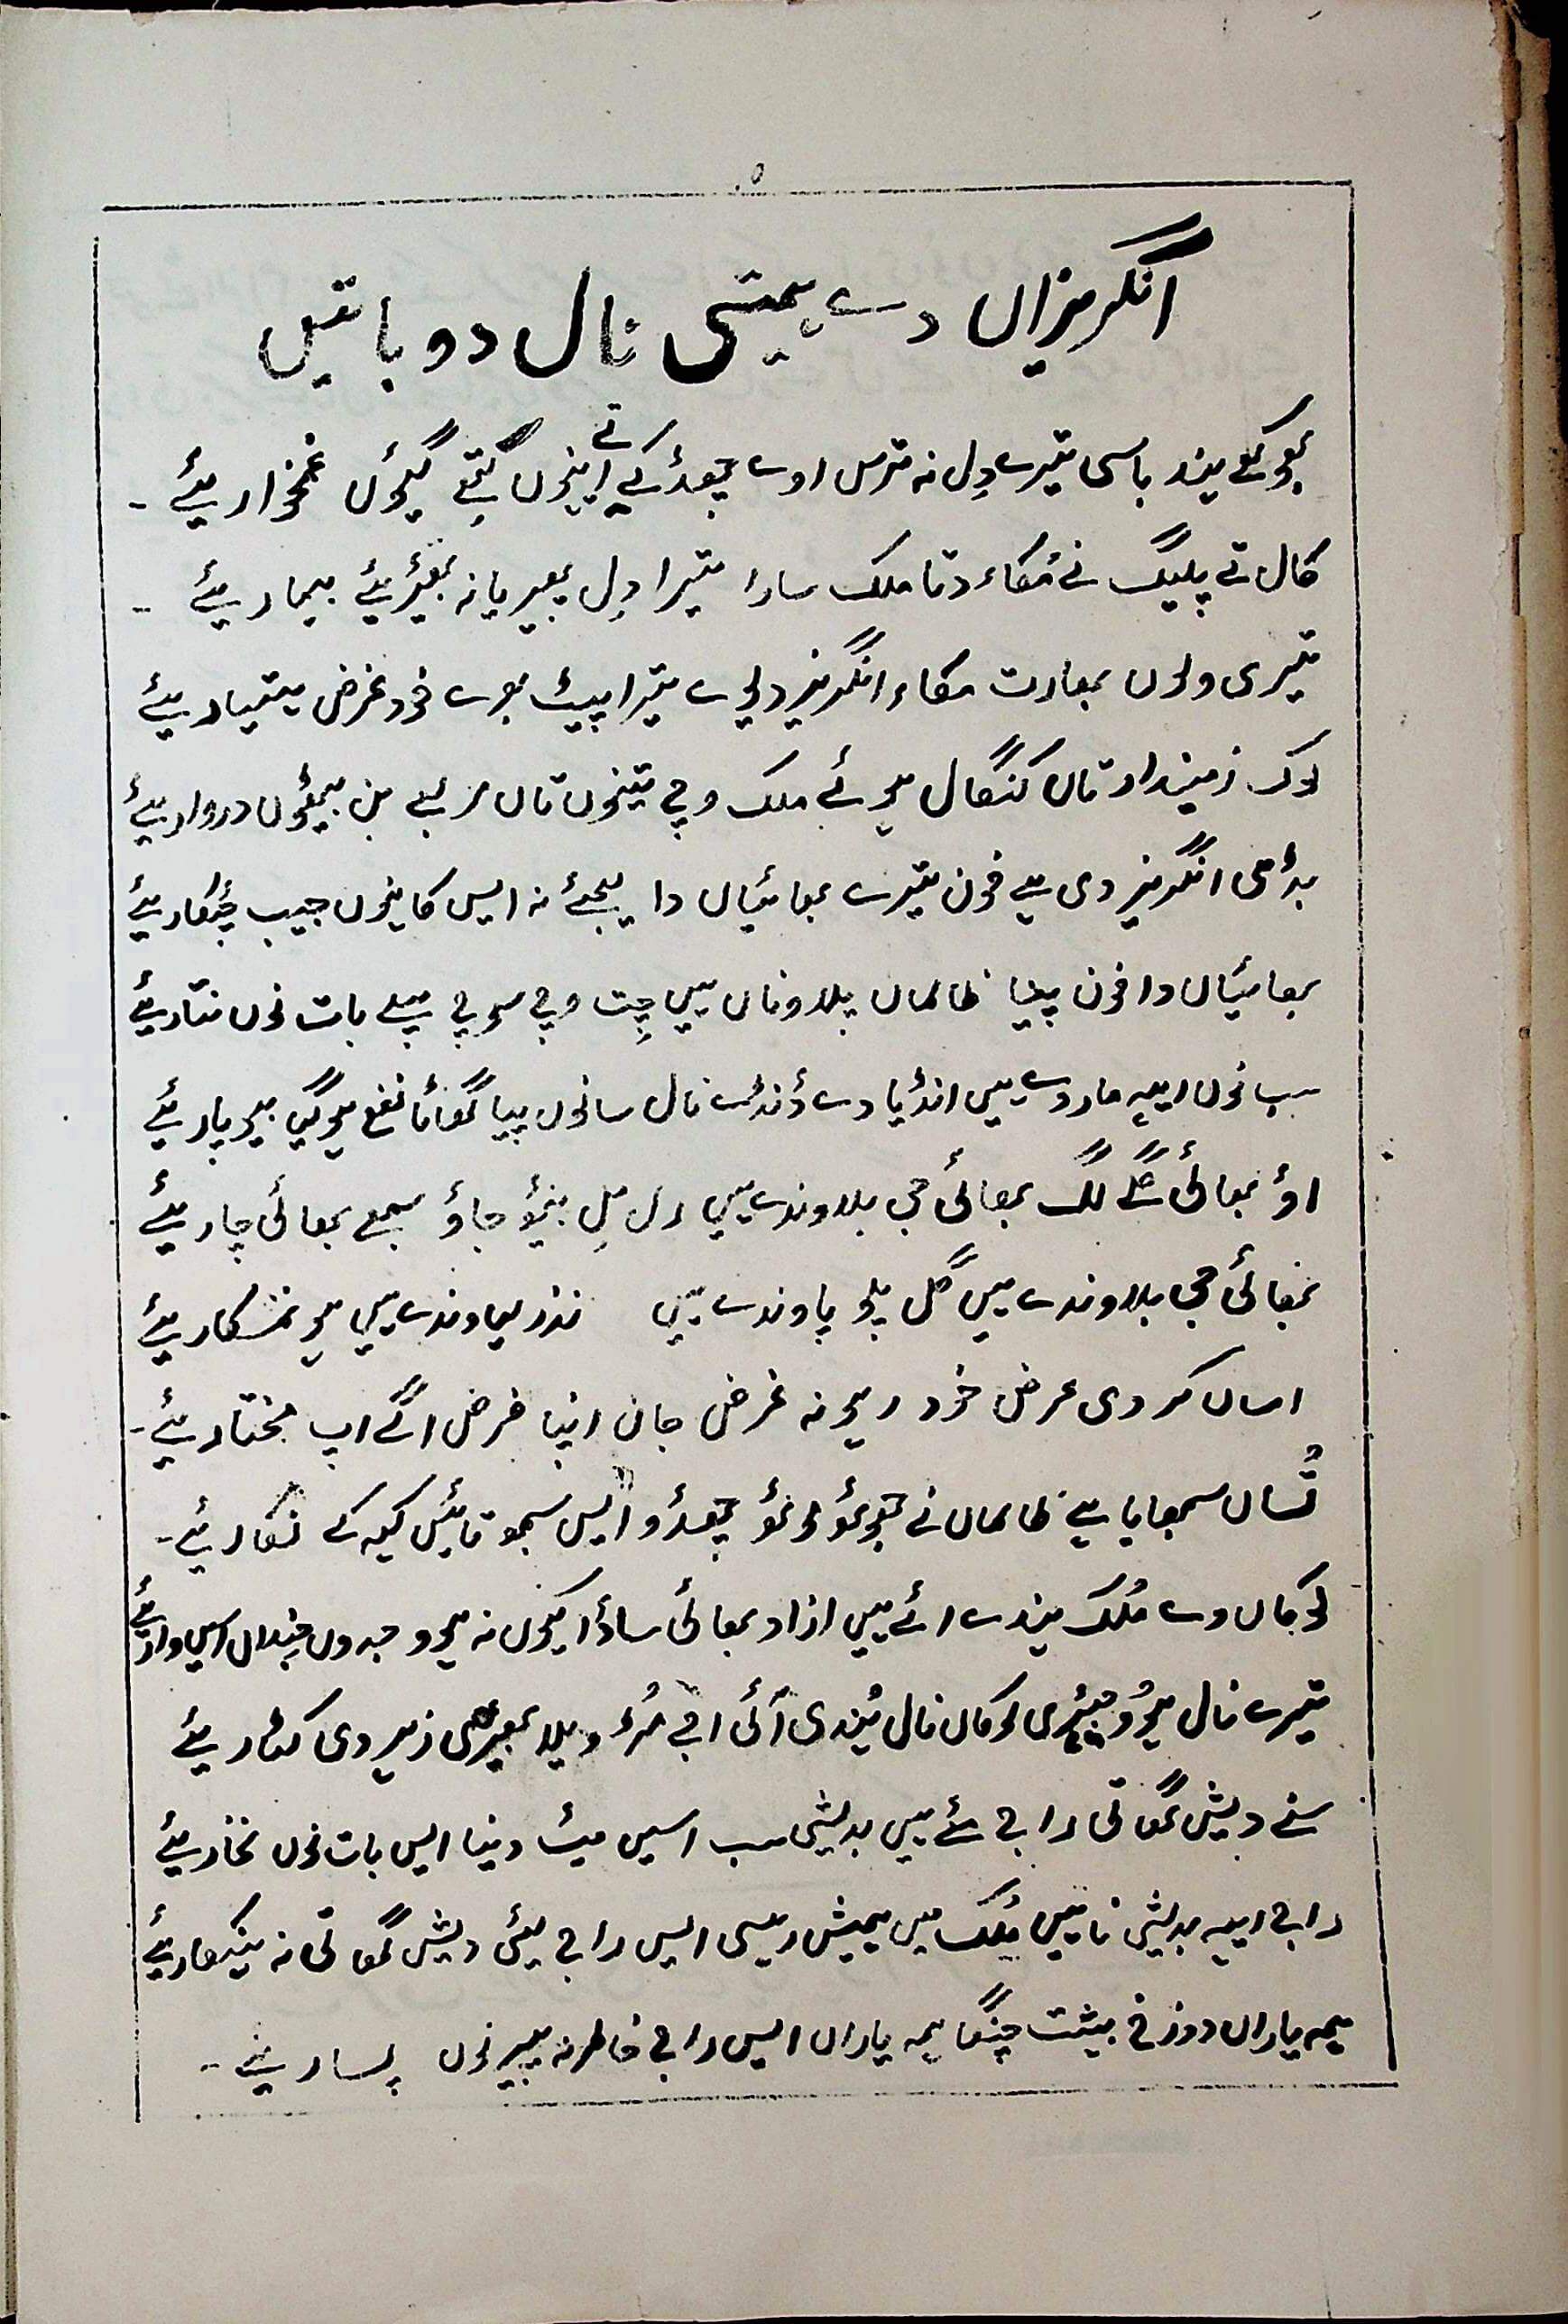 ۵۰
انگریزاں دے ہمیتی نال دو باتیں
بھوکھے ہند باسی تیرے دِل نہ ترس اوے چھڈ کے اینہوں کتے گیئوں غمخوار ہئے ۔
کال تے پلیگ نے مُکاء دتا ملک سارا تیرا دِل بھیریا نہ بھیڑئیے بیمار ہئے ۔
تیری ولوں بھارت مکاء انگریز لیوے تیرا پیٹ بھرے خود غرض ہتیار ہئے
لوک زمیندار تاں کنگال ہوئے ملک وچ تینوں تاں مربعے مِن
بڈھی انگریز دی ہے خون تیرے بھائیاں دا لیجئے نہ ایس کانہوں جیب
بھائیاں دا خون پینا ظالماں پلاونا ہیں چِت وچ سوچ پہلے بات نوں نتاریئے
سب نوں ایہہ ماردے ہیں انڈیا دے ڈنڈے نال سانوں پیا گھاٹا نفع ہوگیا بیوپاریئے
اؤ بھائی گلے لگ بھائی جی بلاوندے ہیں رل مِل بیٹھ جاؤ سبھے بھائی چاریئے
بھائی جی بلاوندے ہیں گل پلو پاوندے ہیں نذر لیاوندے ہیں ہو نمسکاریئے
اساں کردی عرض خود رہو نہ غرض جان اپنا فرض اگے اپ مختاریئے ۔
تُساں سمجھایا ہے ظالماں نے لوٹو چھڈو ایس سبھو تائیں کیہہ کے نکاریئے ۔
لوکاں دے مُلک ہندے ائے ہیں ازاد بھائی ساڈا کیوں نہ ہووے جدوں چندال
تیرے نال ہو لوکاں نال ہُندی آئی اج مُڑ ویلا زہر دی کٹاریئے
سنے دیش گھاتی راج ئے ہیں بدیشی سب اسیں میٹ دینا ایس بات نوں نخاریئے
راج ایہہ بدیشی نا ہیں مُلک میں ہمیش رہسی ایس راج لیئی دیش گھاتی نہ
ہمہ یاراں دوزخ بہشت چنگا ہمہ یاراں ایس راج خاطر نہ پیر نوں پسارئیے ۔